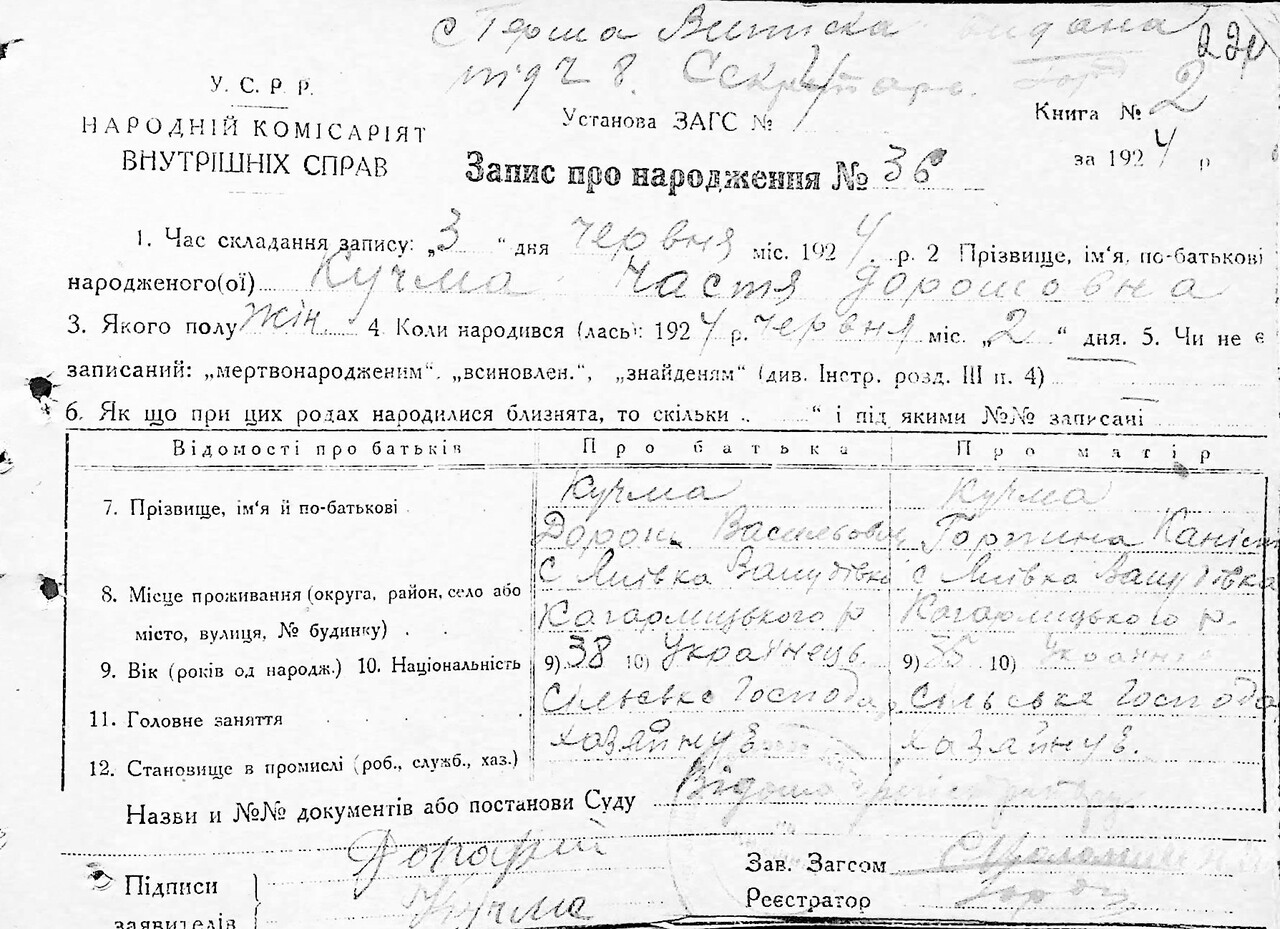 с Перша Виписка видана
під Ч 8. Секретарь.
220
У. С. Р. Р.
НАРОДНІЙ КОМІСАРІЯТ
ВНУТРІШНІХ СПРАВ
Установа ЗАГС №
Книга № 2
за 1924 р
Запис про народження № 36
1. Час складання запису: „3 “ дня червня міс. 1924. р. 2 Прізвище, ім‘я, по-батькові
народженого(ої) Кучма Настя Дорошовна
3. Якого полу жін. 4 Коли народився (лась): 1924 р. червня міс. „2 “ дня. 5. Чи не є
записаний: „мертвонародженим“, „всиновлен.“, „знайденям“ (див. Інстр. розд. III п. 4)
6. Як що при цих родах народилися близнята, то скільки .. “ і під якими №№ записані
Відомості про батьків Про батька Про матір
7. Прізвище, ім‘я й по-батькові
Кучма Кучма
Дорош Васильович Горпина
8. Місце проживання (округа, район, село або
місто, вулиця, № будинку) . .
с с
Кагарлицького р Кагарлицького р.
9. Вік (років од народж.) 10. Національність 9) 38 10) Українець 9) 35 10)
11. Головне заняття . . . .
Сільське Господа Сільське Господа
12. Становище в промислі (роб., служб., хаз.)
хазяйнує хазяйнує.
Назви и №№ документів або постанови Суду
Підписи
заявителів
Кучма
Зав. Загсом
Реєстратор